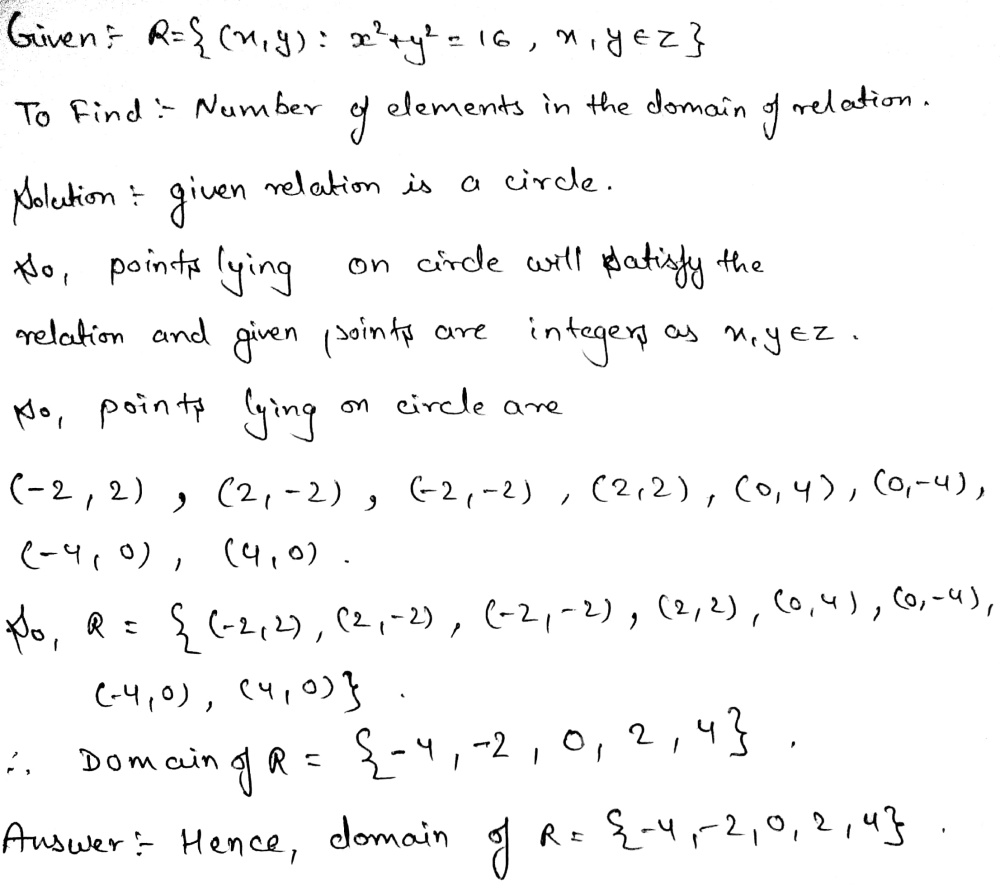 Given :- R={(x,y) : x²+y² = 16 , x, y ∈ Z}
To Find :- Number of elements in the domain of relation.
Solution :- given relation is a circle.
So, points lying on circle will satisfy the
relation and given points are integers as x, y ∈ Z .
So, points lying on circle are
(-2, 2) , (2, -2) , (-2, -2) , (2, 2) , (0, 4) , (0, -4) ,
(-4, 0) , (4, 0) .
So, R = {(-2, 2) , (2, -2) , (-2, -2) , (2, 2) , (0, 4) , (0, -4) ,
(-4, 0) , (4, 0)} .
∴ Domain of R = {-4, -2, 0, 2, 4} .
Answer :- Hence, domain of R = {-4, -2, 0, 2, 4} .